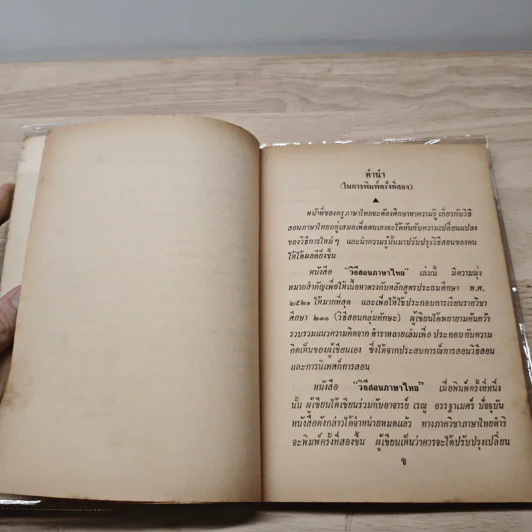 คำนำ
(ในการพิมพ์ครั้งที่สอง)
หน้าที่ของครูภาษาไทยจะต้องศึกษาหาความรู้ เกี่ยวกับวิธี
สอนภาษาไทยอยู่เสมอเพื่อตนเองจะได้ทันกับความเปลี่ยนแปลง
ของวิธีการใหม่ ๆ และนำความรู้นั้นมาปรับปรุงวิธีสอนของตน
ให้ได้ผลดียิ่งขึ้น
หนังสือ "วิธีสอนภาษาไทย" เล่มนี้ มีความมุ่ง
หมายสำคัญเพื่อให้เนื้อหาตรงกับหลักสูตรประถมศึกษา พ.ศ.
๒๕๒๑ ให้มากที่สุด และเพื่อให้ใช้ประกอบการเรียนรายวิชา
ศึกษา ๒๓๑ (วิธีสอนกลุ่มทักษะ) ผู้เขียนได้พยายามค้นคว้า
รวบรวมแนวความคิดจาก ตำราหลายเล่มเพื่อ ประกอบกับความ
คิดเห็นของผู้เขียนเอง ซึ่งได้จากประสบการณ์การสอนวิธีสอน
และการนิเทศก์การสอน
หนังสือ "วิธีสอนภาษาไทย" เมื่อพิมพ์ครั้งที่หนึ่ง
นั้น ผู้เขียนได้เขียนร่วมกับอาจารย์ เรณู อรรฐาเมศร์ ปัจจุบัน
หนังสือดังกล่าวได้จำหน่ายหมดแล้ว ทางภาควิชาภาษาไทยดำริ
จะพิมพ์ครั้งที่สองขึ้น ผู้เขียนเห็นว่าควรจะได้ปรับปรุงเปลี่ยน